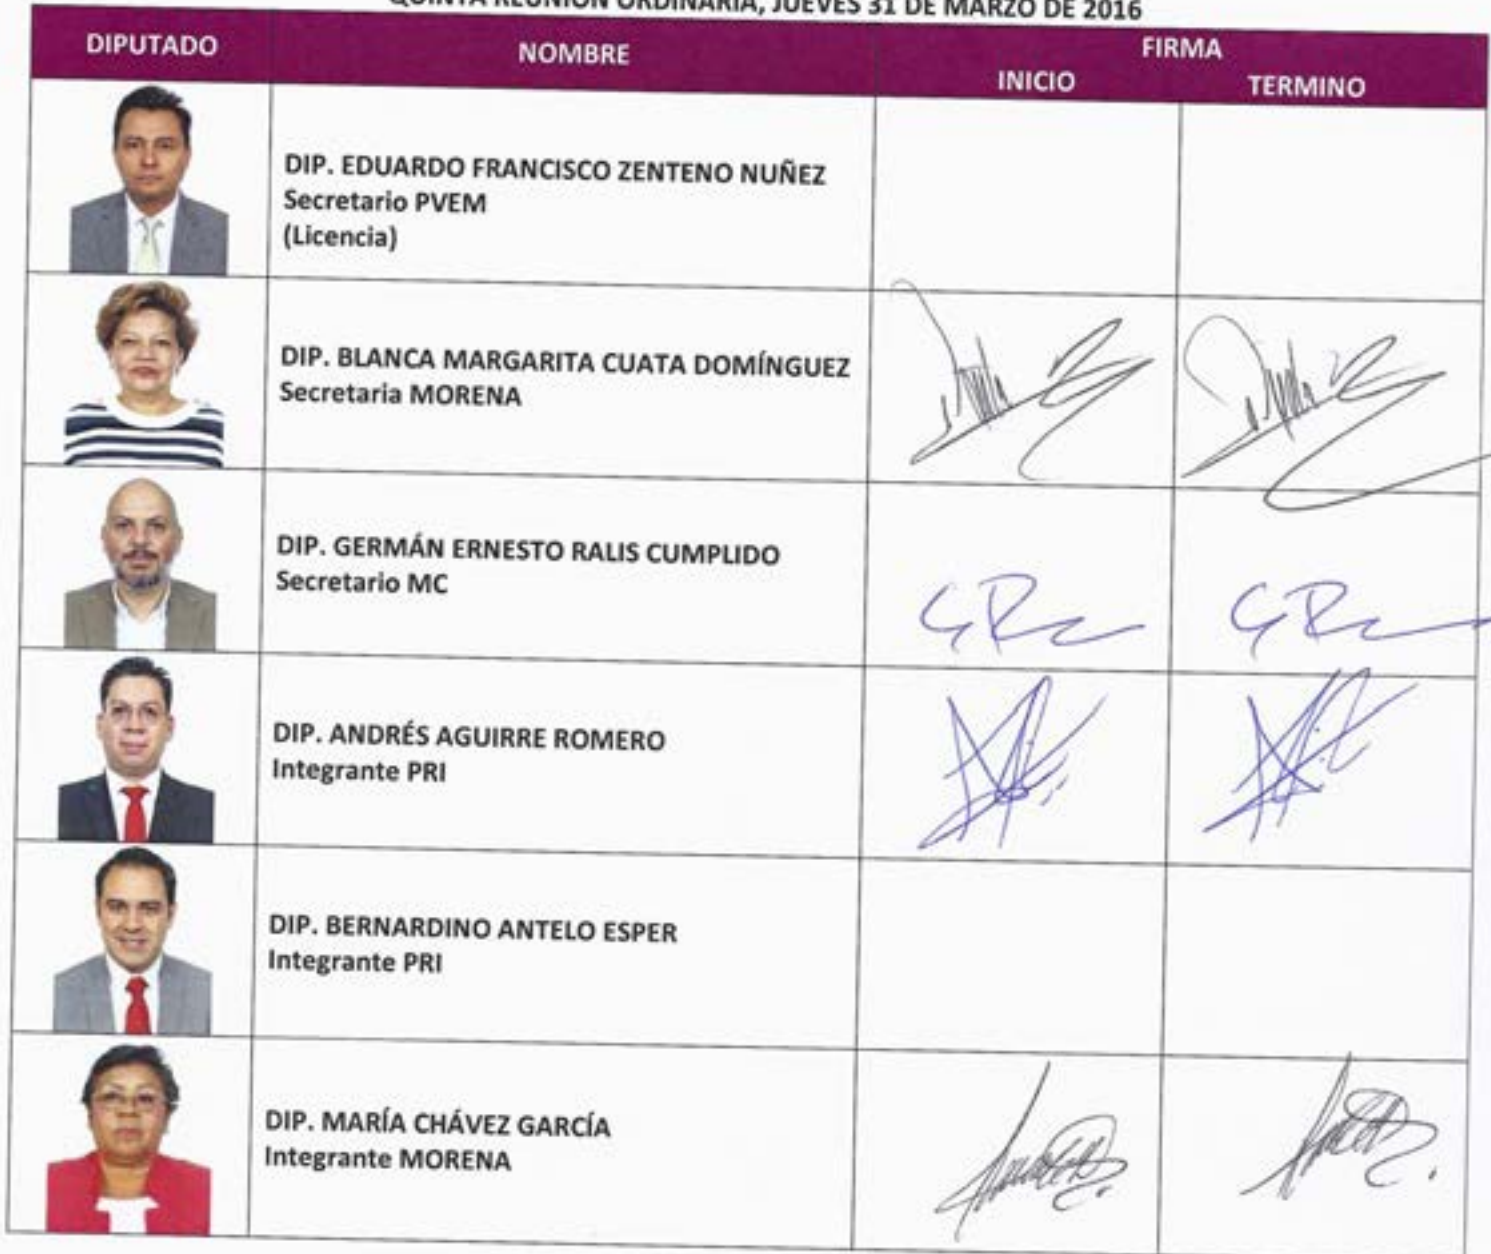 QUINTA REUNIÓN ORDINARIA, JUEVES 31 DE MARZO DE 2016
DIPUTADO NOMBRE FIRMA
INICIO TERMINO
DIP. EDUARDO FRANCISCO ZENTENO NUÑEZ
Secretario PVEM
(Licencia)
DIP. BLANCA MARGARITA CUATA DOMÍNGUEZ
Secretaria MORENA
DIP. GERMÁN ERNESTO RALIS CUMPLIDO
Secretario MC
DIP. ANDRÉS AGUIRRE ROMERO
Integrante PRI
DIP. BERNARDINO ANTELO ESPER
Integrante PRI
DIP. MARÍA CHÁVEZ GARCÍA
Integrante MORENA